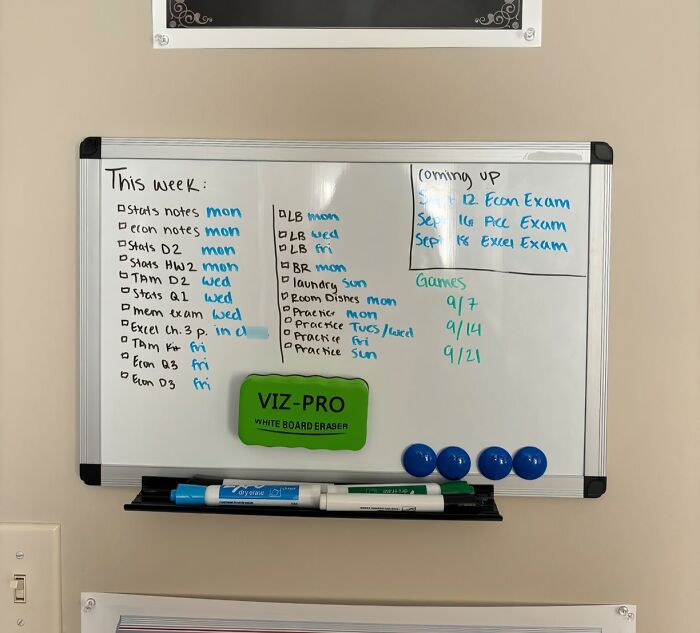 This week:
Stats notes mon
econ notes mon
Stats D2 mon
Stats HW2 mon
TAM D2 wed
Stats Q1 wed
mem exam wed
Excel Ch. 3 p. in
TAM fri
Econ Q3 fri
Econ D3 fri
LB mon
LB wed
LB fri
BR mon
laundry sun
Room Dishes mon
Practice mon
Practice Tues/wed
Practice fri
Practice sun
coming up
Sept 12 Econ Exam
Sept 16 Acc Exam
Sept 18 Excel Exam
Games
9/7
9/14
9/21
VIZ-PRO
WHITE BOARD ERASER
dry erase